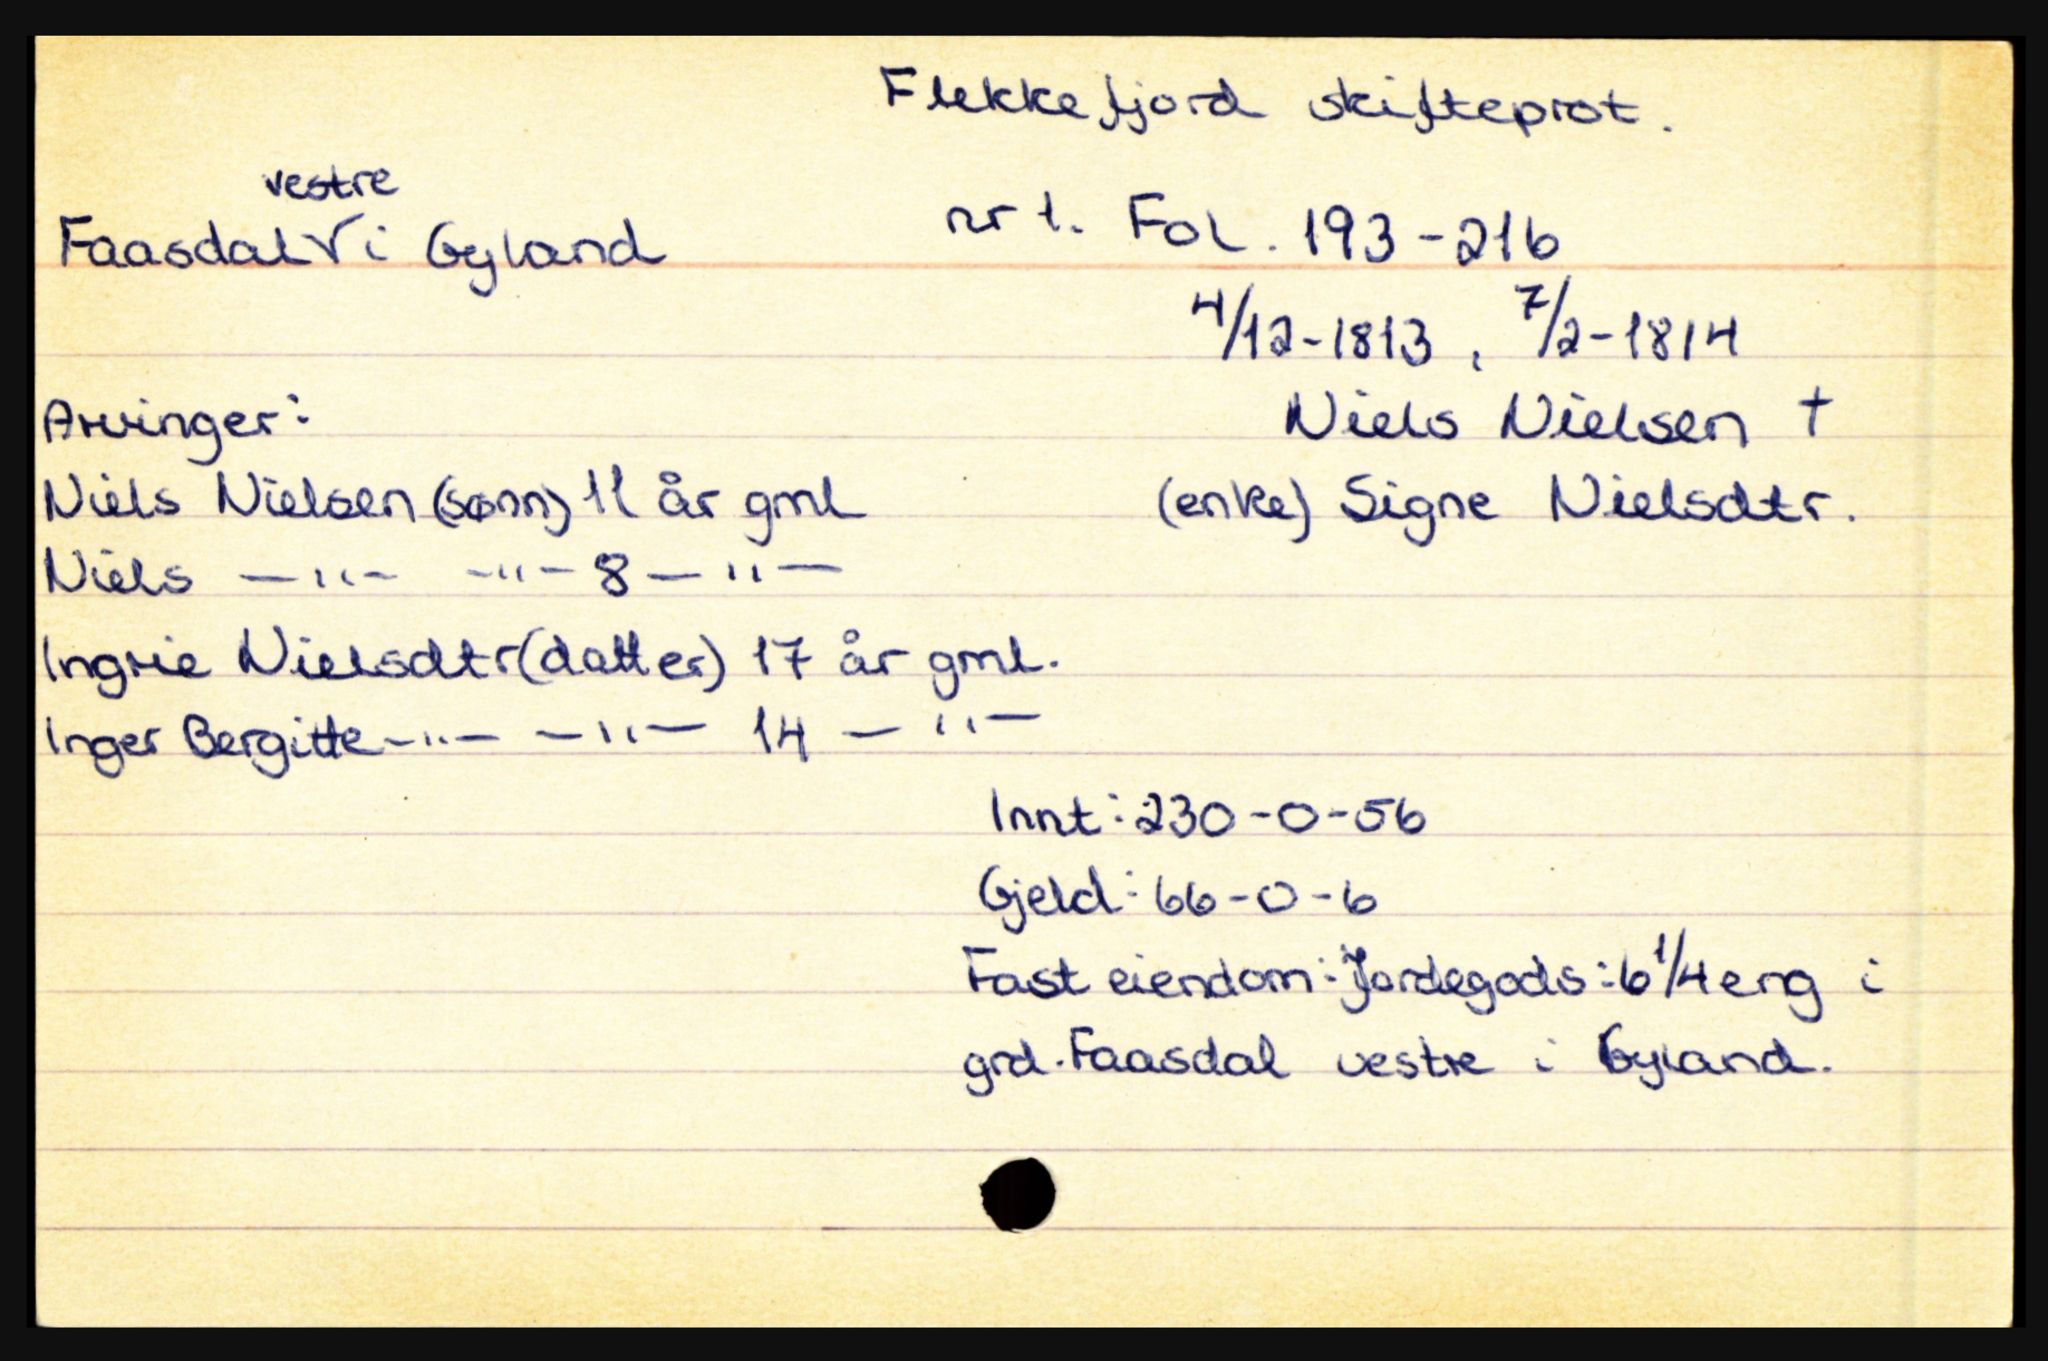 Flekkefjord skifteprot.
vestre
Faasdal V i Gyland
nr 1. Fol. 193-216
4/12-1813, 7/2-1814
Niels Nielsen †
(enke) Signe Nielsdtr.
Arvinger:
Niels Nielsen (sønn) 11 år gml
Niels -"- -"- 8 -"-
Ingrie Nielsdtr (datter) 17 år gml.
Inger Bergitte -"- -"- 14 -"-
Innt: 230-0-56
Gjeld: 66-0-6
Fast eiendom: Jordegods: 6 1/4 eng i
grd. Faasdal vestre i Gyland.